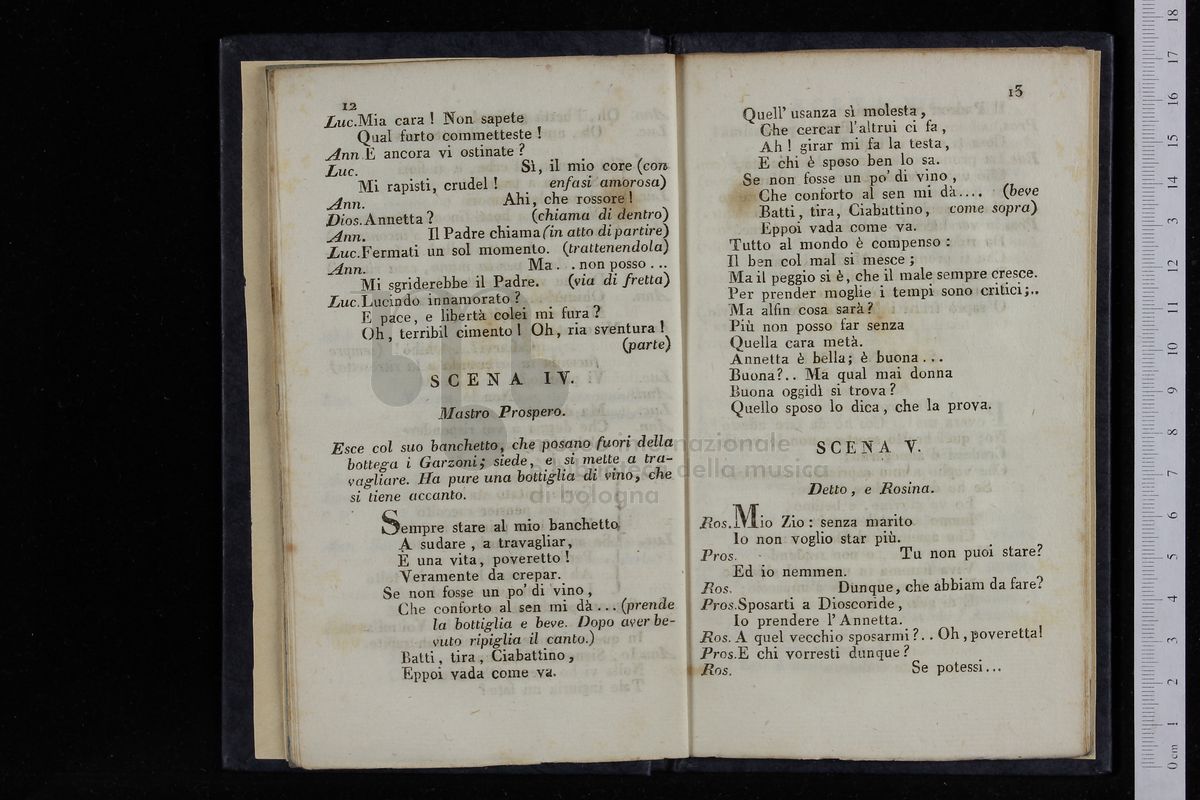 12
Luc. Mia cara ! Non sapete
Qual furto commetteste !
Ann. E ancora vi ostinate ?
Luc. Sì, il mio core (con
Mi rapisti, crudel ! enfasi amorosa)
Ann. Ahi, che rossore !
Dios. Annetta ? (chiama di dentro)
Ann. Il Padre chiama (in atto di partire)
Luc. Fermati un sol momento. (trattenendola)
Ann. Ma . . non posso ...
Mi sgriderebbe il Padre. (via di fretta)
Luc. Lucindo innamorato ?
E pace, e libertà colei mi fura ?
Oh, terribil cimento ! Oh, ria sventura !
(parte)
SCENA IV.
Mastro Prospero.
Esce col suo banchetto, che posano fuori della
bottega i Garzoni; siede, e si mette a tra-
vagliare. Ha pure una bottiglia di vino, che
si tiene accanto.
Sempre stare al mio banchetto
A sudare , a travagliar,
E una vita, poveretto !
Veramente da crepar.
Se non fosse un po' di vino ,
Che conforto al sen mi dà ... (prende
la bottiglia e beve. Dopo aver be-
vuto ripiglia il canto.)
Batti, tira, Ciabattino,
Eppoi vada come va.
13
Quell' usanza sì molesta,
Che cercar l'altrui ci fa,
Ah ! girar mi fa la testa,
E chi è sposo ben lo sa.
Se non fosse un po' di vino ,
Che conforto al sen mi dà.... (beve
Batti, tira, Ciabattino, come sopra)
Eppoi vada come va.
Tutto al mondo è compenso :
Il ben col mal si mesce ;
Ma il peggio si è, che il male sempre cresce.
Per prender moglie i tempi sono critici;..
Ma alfin cosa sarà ?
Più non posso far senza
Quella cara metà.
Annetta è bella; è buona ...
Buona?.. Ma qual mai donna
Buona oggidì si trova ?
Quello sposo lo dica, che la prova.
SCENA V.
Detto, e Rosina.
Ros. Mio Zio : senza marito
Io non voglio star più.
Pros. Tu non puoi stare?
Ed io nemmen.
Ros. Dunque, che abbiam da fare?
Pros. Sposarti a Dioscoride,
Io prendere l'Annetta.
Ros. A quel vecchio sposarmi ?.. Oh, poveretta!
Pros. E chi vorresti dunque ?
Ros. Se potessi...
museo internazionale
e biblioteca della musica
di bologna
0 cm 1 2 3 4 5 6 7 8 9 10 11 12 13 14 15 16 17 18